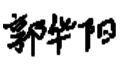 郭华阳